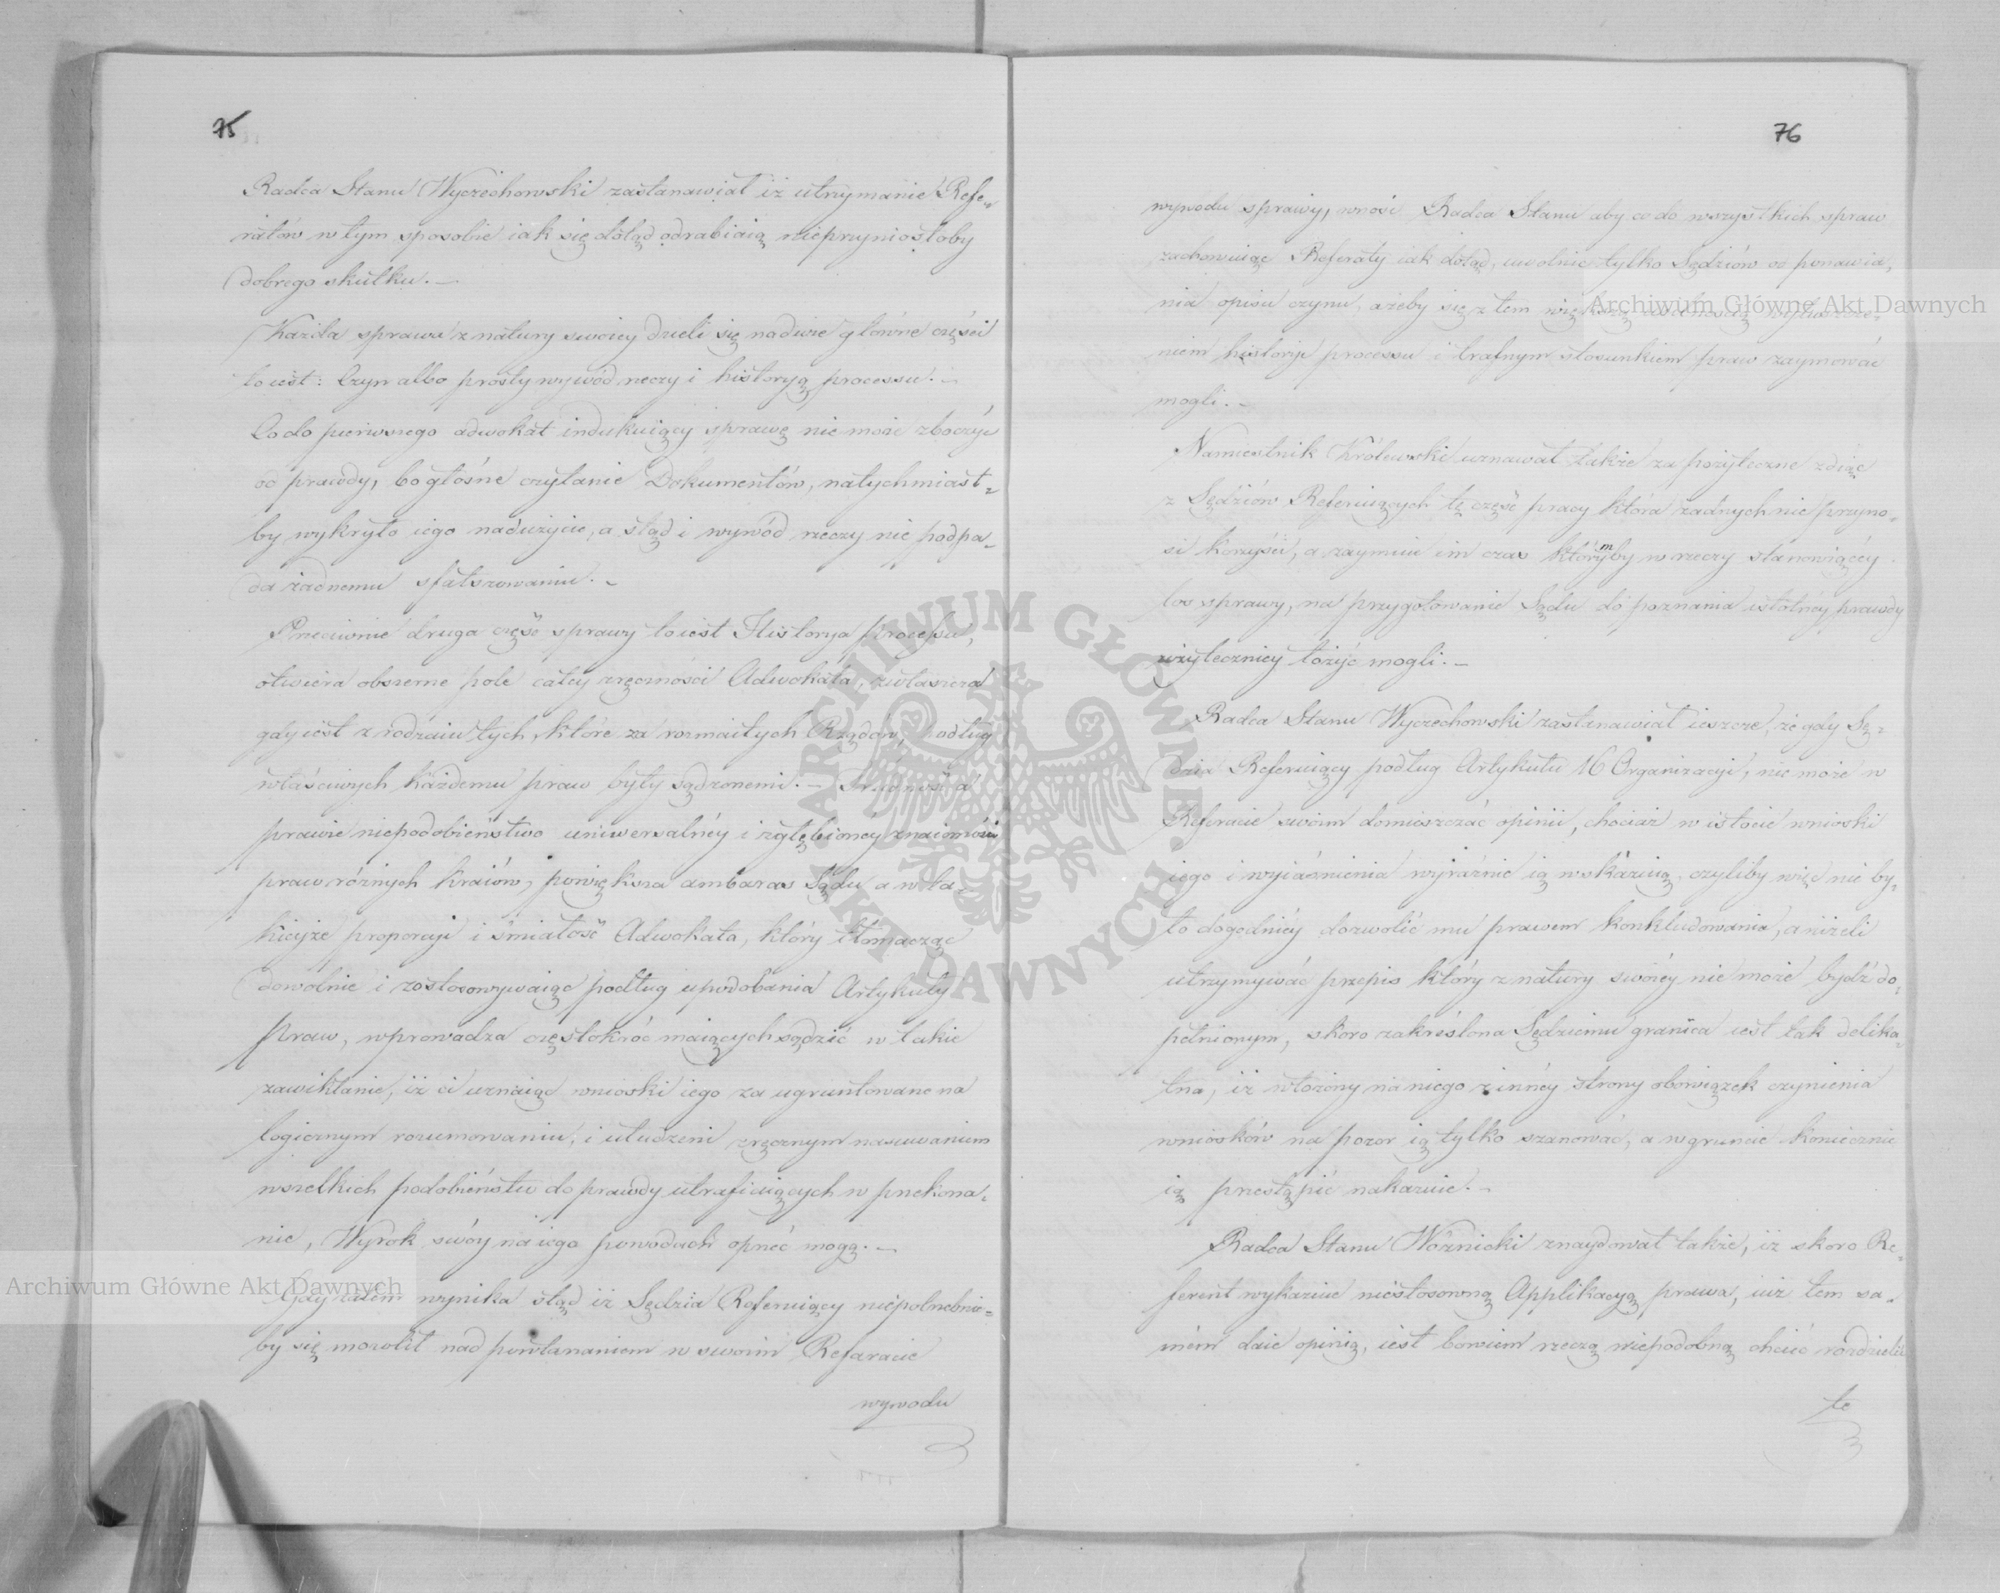 75
Radca Stanu Wyczechowski zastanawiał iż utrzymanie Refe-
ratów w tym sposobie iak się dotąd odrabiaią nieprzyniosłoby
dobrego skutku. –
Każda sprawa z natury swoiey dzieli się na dwie główne części
to iest: Czyn albo prosty wywód rzeczy i historyą processu. –
Co do pierwszego adwokat indukuiący sprawę nie może zboczyć
od prawdy, bo głośne czytanie Dokumentów, natychmiast-
by wykryło iego nadużycie, a stąd i wywód rzeczy nie podpa-
da żadnemu sfałszowaniu. –
Przeciwnie druga część sprawy to iest Historya Processu,
otwiera obszerne pole całey zręczności Adwokata, zwłaszcza
gdy iest z rodzaiu tych, które za rozmaitych Rządów, podług
właściwych każdemu praw były sądzonemi. – Trudność a
prawie niepodobieństwo uniwersalnéy i zgłębionéy znaiomości
praw różnych kraiów, powiększa ambaras Sądu, a w ta-
kieyże proporcyi i śmiałość Adwokata, który tłomacząc
dowolnie i zastosowywaiąc podług upodobania Artykuły
Praw, wprowadza częstokroć maiących sądzić w takie
zawikłanie, iż ci uznaiąc wnioski iego za ugruntowane na
logicznym rozumowaniu, iułudzeni zręcznym nasuwaniem
wszelkich podobieństw do prawdy utrafiaiących w przekona-
nie, Wyrok swóy na iego powodach oprzeć mogą. –
Gdy zatem wynika stąd iż Sędzia Referuiący niepotrzebnie-
by się mozolił nad powtarzaniem w swoim Referacie
wywodu
76
wywodu sprawy, wnosi Radca Stanu aby co do wszystkich spraw
zachowuiąc Referaty iak dotąd, uwolnić tylko Sędziów od ponawia-
nia opisu czynu, ażeby się z tem większą
niem historyi processu i trafnym stosunkiem praw zaymować
mogli. –
Namiestnik Królewski uznawał także za pożyteczne zdiąć
z Sędziów Referuiących tę część pracy która żadnych nie przyno-
si korzyści, a zaymuie im czas którymby w rzeczy stanowiącéy
los sprawy, na przygotowanie Sądu do poznania istotnéy prawdy
użyteczniey łożyć mogli. –
Radca Stanu Wyczechowski zastanawiał ieszcze, że gdy Sę-
dzia Referuiący podług Artykułu 16 Organizacyi, nie może w
Referacie swoim domieszczać opinii, chociaż w istocie wnioski
iego i wyiaśnienia wyraźnie ią wskazuią, czyliby więc nie by-
ło dogodniéy dozwolić mu prawem konkludowania, aniżeli
utrzymywać przepis który z natury swoiéy nie może bydź do-
pełnionym, skoro zakreślona Sędziemu granica iest tak delika-
tna, iż włożony na niego z innéy strony obowiązek czynienia
wniosków na pozor ią tylko szanować, a w gruncie koniecznie
ią przestąpić nakazuie. –
Radca Stanu Woźnicki znaydował także, iż skoro Re-
ferent wykazuie niestosowną Applikacyą prawa, iuż tem sa-
mém daie opinią, iest bowiem rzeczą niepodobną chcieć rozdzielić
te
Archiwum Główne Akt Dawnych
Archiwum Główne Akt Dawnych
ARCHIWUM GŁÓWNE AKT DAWNYCH